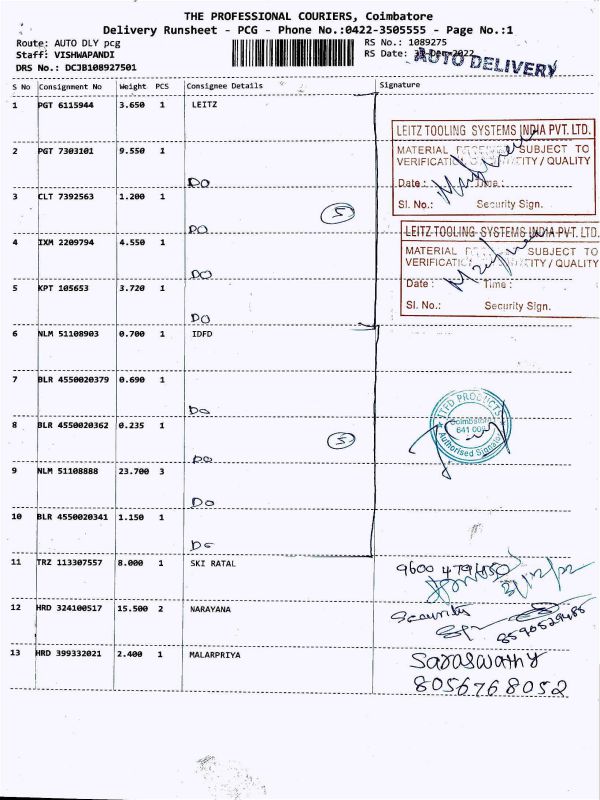 THE PROFESSIONAL COURIERS, Coimbatore
Delivery Runsheet - PCG - Phone No.:0422-3505555 - Page No.:1
Route: AUTO DLY pcg RS No.: 1089275
Staff: VISHWAPANDI RS Date: Dec-2022
DRS No.: DCJB108927501 AUTO DELIVERY
S No Consignment No Weight PCS Consignee Details Signature
1 PGT 6115944 3.650 1 LEITZ
LEITZ TOOLING SYSTEMS INDIA PVT. LTD.
2 PGT 7303101 9.550 1 MATERIAL SUBJECT TO
VERIFICATION QUALITY
DO Date : Time :
3 CLT 7392563 1.200 1 Sl. No.: Security Sign.
5
DO LEITZ TOOLING SYSTEMS INDIA PVT. LTD.
4 IXM 2209794 4.550 1 MATERIAL SUBJECT TO
QUALITY
DO
5 KPT 105653 3.720 1 Date : Time :
Sl. No.: Security Sign.
DO
6 NLM 51108903 0.700 1 IDFD
7 BLR 4550020379 0.690 1
DO
8 BLR 4550020362 0.235 1
PRODUCTS Coimbatore Authorised Signatory
5
DO
9 NLM 51108888 23.700 3
DO
10 BLR 4550020341 1.150 1
DO
11 TRZ 113307557 8.000 1 SKI RATAL
12 HRD 324100517 15.500 2 NARAYANA Security
8590529485
13 HRD 399332021 2.400 1 MALARPRIYA Saraswathy
8056768052